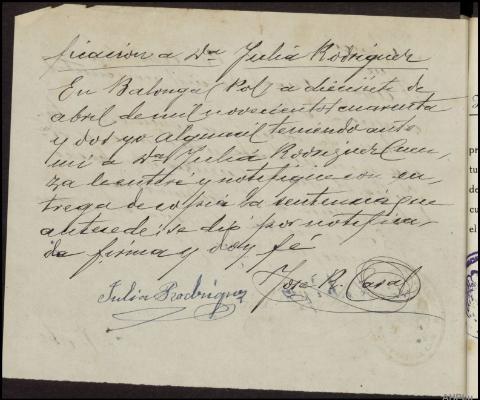 ficación a Dña Julia Rodriguez
En Balonga (Pol a diecisiete de
abril de mil novecientos cuarenta
y dos yo alguacil teniendo ante
mi a Dña Julia Rodriguez
za lei y notifique con en-
trega de copia la sentencia que
antecede; se dio por notifica-
da firma y doy fé
Julia Rodriguez
Jose R. Casal